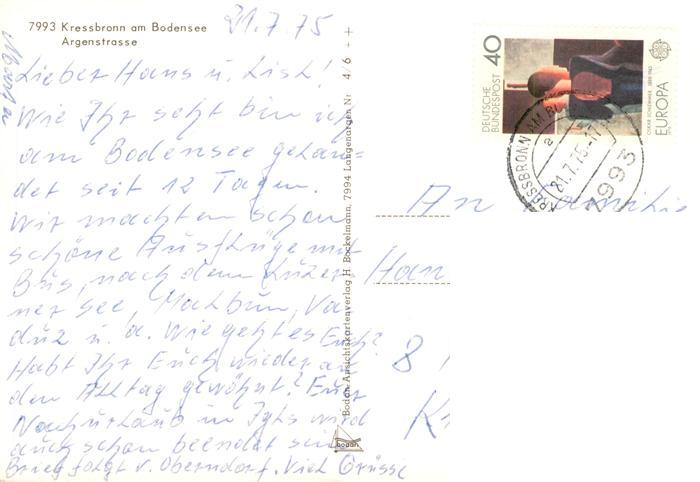 7993 Kressbronn am Bodensee
Argenstrasse
21.7.75
Lieber Hans u. Lisl!
Wie Ihr seht bin ich
am Bodensee gelan-
det seit 12 Tagen.
Wir machten schon
schöne Ausflüge mit
Bus, nach dem Luzer-
ner see, Malbun, Va-
duz u. a. Wie geht es Euch?
Habt Ihr Euch wieder an
den Alltag gewöhnt? Euer
Nachurlaub in Igls wird
auch schon beendet sein
Brief folgt v. Oberndorf. Viel Grüsse
Bodan Ansichtskartenverlag H. Bockelmann, 7994 Langenargen Nr 4/6 ++
bodan
DEUTSCHE
BUNDESPOST
40
OSKAR SCHLEMMER 1888-1943
EUROPA
KRESSBRONN AM
a
21.7.75-17
7993
An Familie
Han
8
K